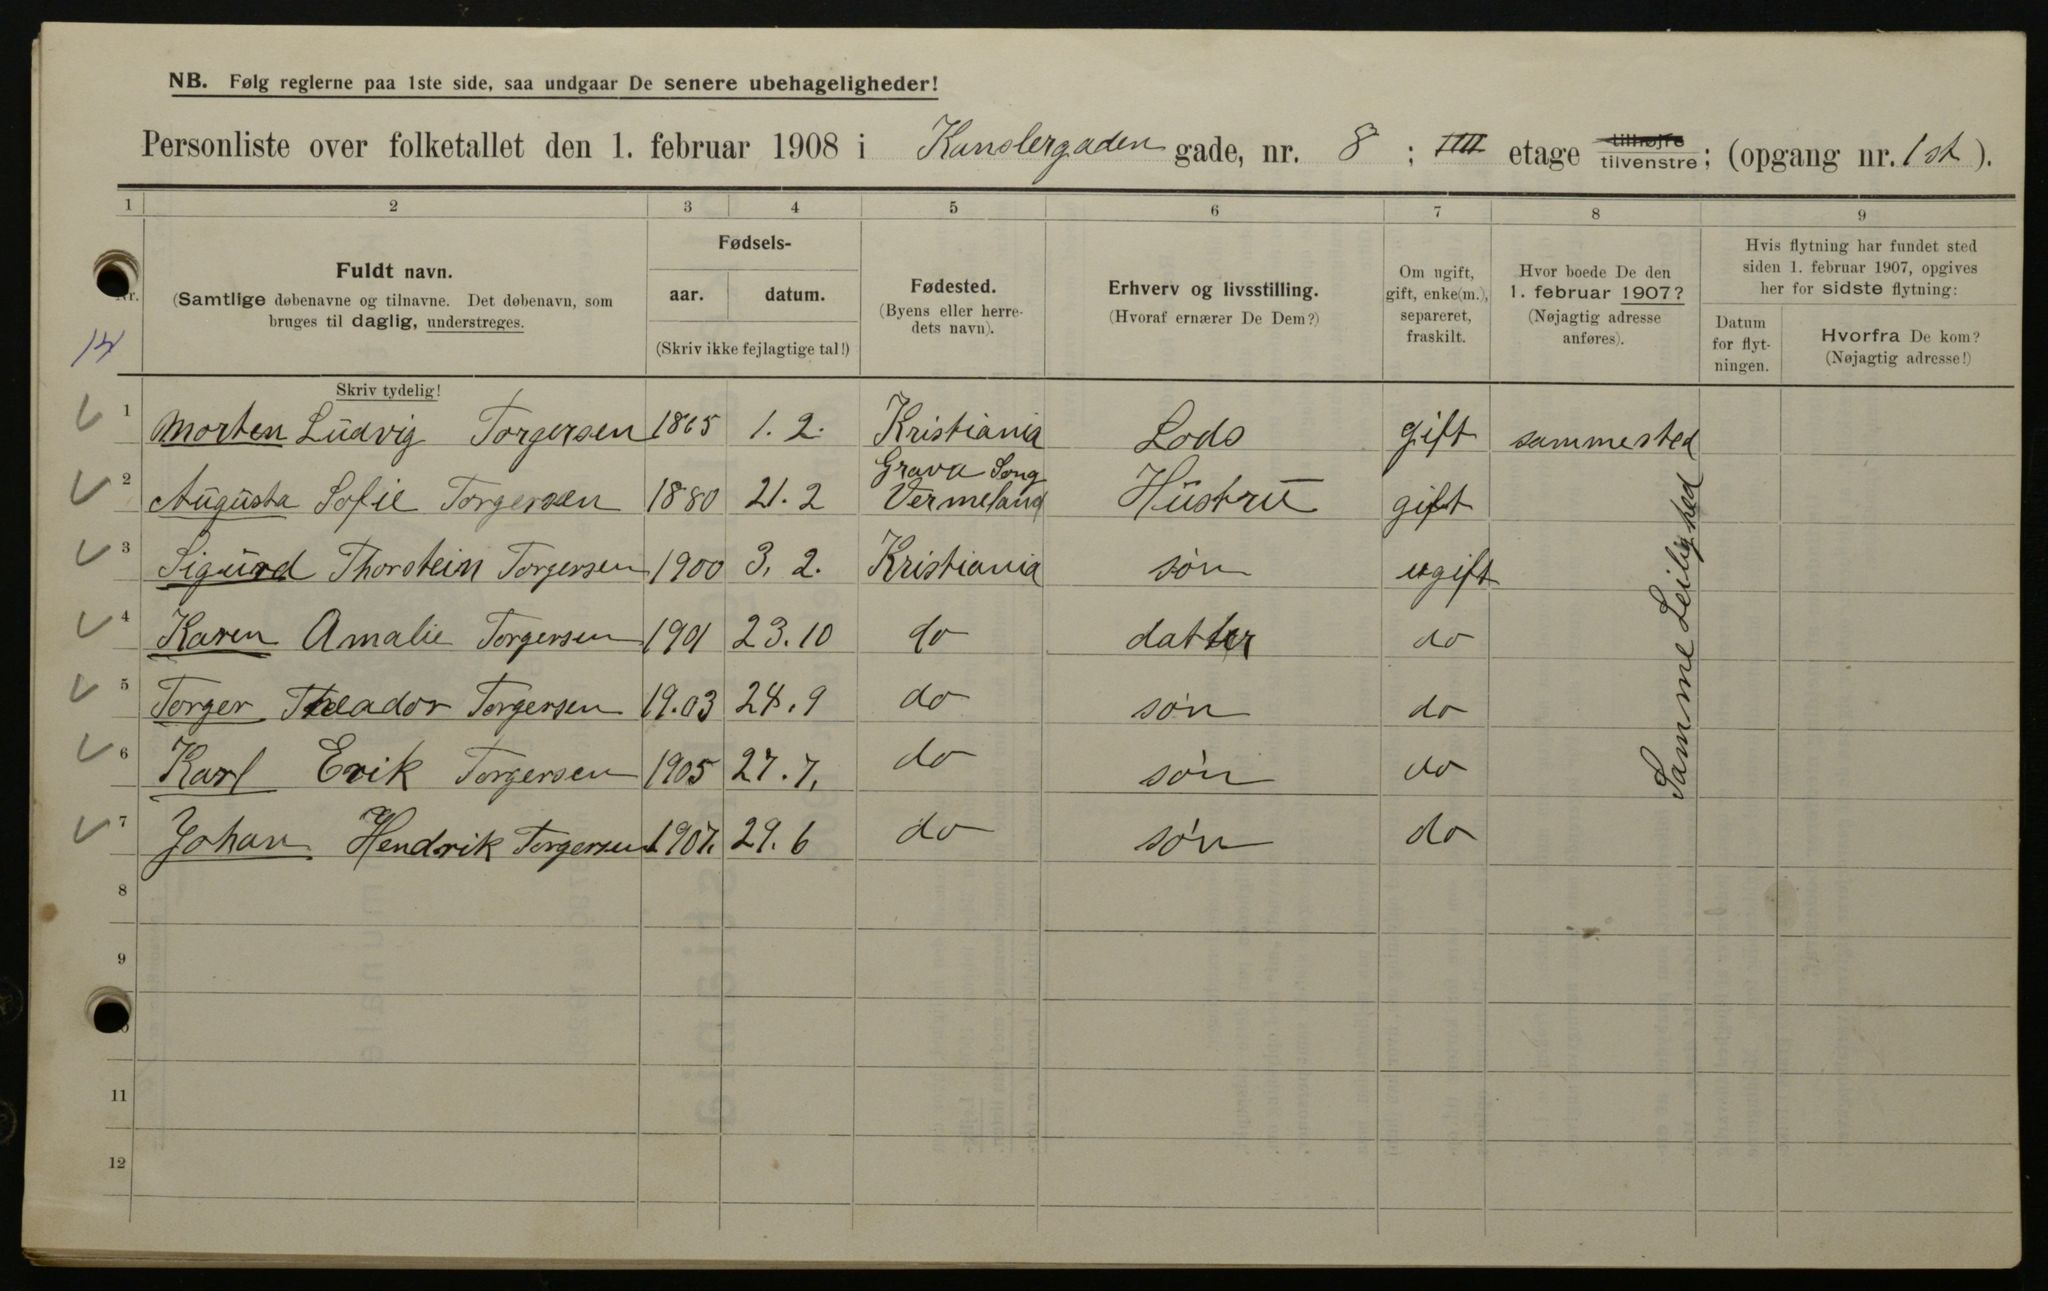 NB. Følg reglerne paa 1ste side, saa undgaar De senere ubehageligheder!
Personliste over folketallet den 1. februar 1908 i Kanslergaden gade, nr. 8; IIII etage tilhøjre tilvenstre; (opgang nr. 1 st).
1 2 3 4 5 6 7 8 9
Nr.
Fuldt navn.
(Samtlige døbenavne og tilnavne. Det døbenavn, som
bruges til daglig, understreges.
Skriv tydelig!
Fødsels-
aar. datum.
(Skriv ikke fejlagtige tal!)
Fødested.
(Byens eller herre-
dets navn).
Erhverv og livsstilling.
(Hvoraf ernærer De Dem?)
Om ugift,
gift, enke(m.),
separeret,
fraskilt.
Hvor boede De den
1. februar 1907?
(Nøjagtig adresse
anføres).
Hvis flytning har fundet sted
siden 1. februar 1907, opgives
her for sidste flytning:
Datum
for flyt-
ningen.
Hvorfra De kom?
(Nøjagtig adresse!)
1 Morten Ludvig Torgersen 1865 1. 2. Kristiania Lods gift sammested
2 Augusta Sofie Torgersen 1880 21. 2 Grava Song Vermeland Hustru gift
3 Sigurd Thorstein Torgersen 1900 3. 2. Kristiania søn ugift
4 Karen Amalie Torgersen 1901 23. 10 do datter do
5 Torger Theador Torgersen 19.03 24. 9 do søn do
6 Karl Erik Torgersen 1905 27. 7. do søn do
7 Johan Hendrik Torgersen 1907. 29. 6 do søn do
Samme Leilighed
8
9
11
12